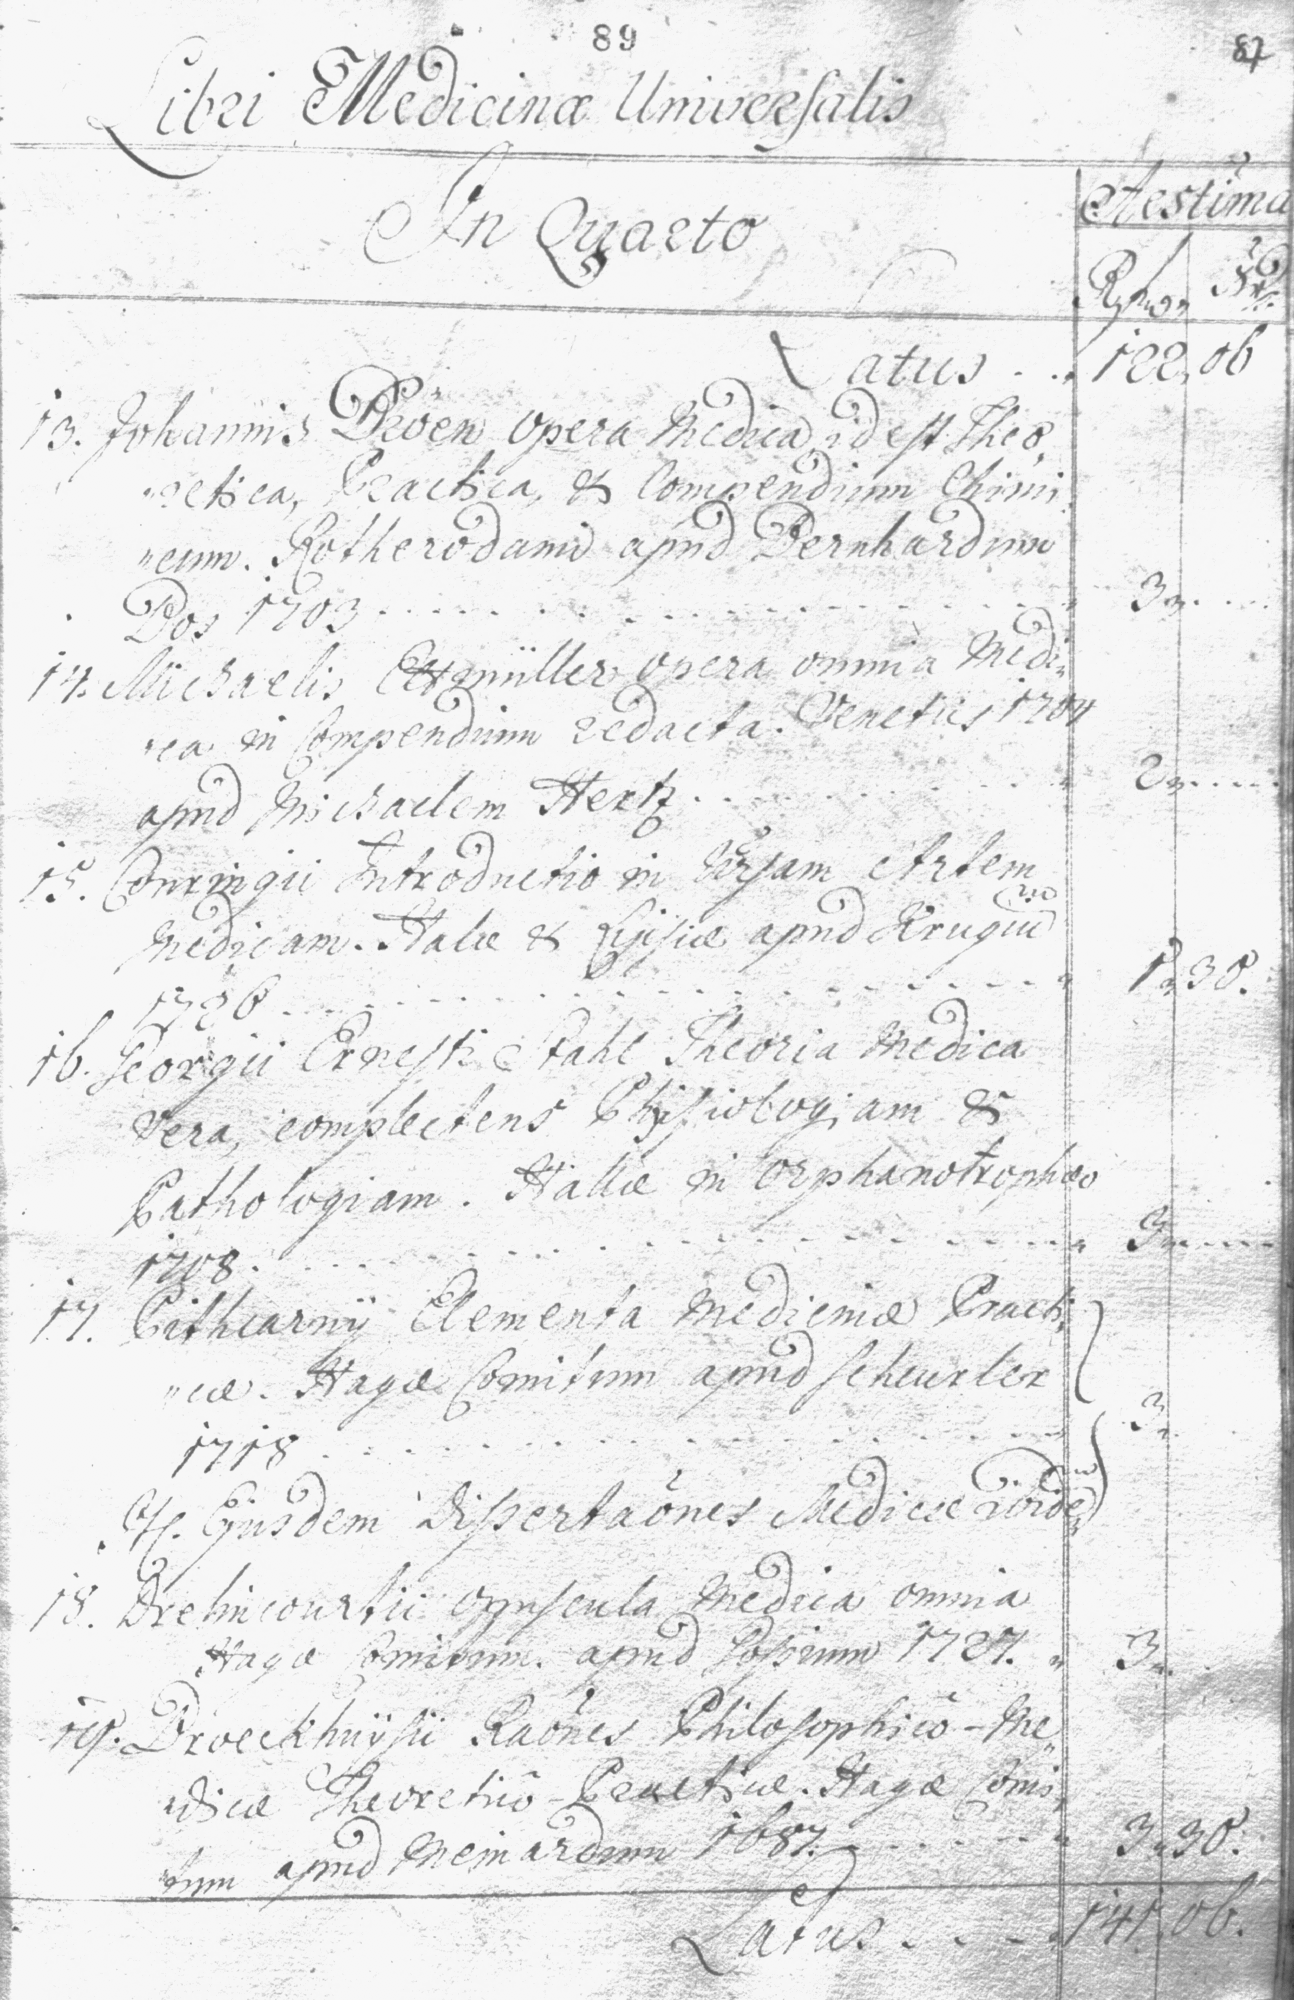 89
87
Libri Medicinæ Universalis
In Quarto
Aestima
Rfnor, Xr.
Latus . . 122, 06
13. Johannis Dröen opera Medica, id est Theo„
„retica, Practica, & Compendium Chimi„
„cum. Rotherodami apud Bernhardum
Bos 1703 . . . . . 3„ . . .
14. Michaelis Ettmüller opera omnia Medi„
„ca in Compendium redacta. Venetiis 1704
apud Michaelem Hertz . . . . . 2„ . . .
15. Conringii Introductio in Vrsam Artem
Medicam. Halæ & Lipsiæ apud Krugiũ
1726 . . . . . 1„ 30.
16. Georgii Ernesti Stahl Theoria Medica
vera, complectens Phisiologiam &
Pathologiam. Hallæ in orphanotrophæo
1708 . . . . . 3„ . . .
17. Pithcarnij Elementa Medicinæ Practi„
„cæ. Hagæ Comitum apud Scheurler
1718 . . . . . 3„
Ejusdem Dissertaões Medicæ ibidē
18. Drelincourtii opuscula Medica omnia
Hagæ Comitum. apud Gossium 1727. „ 3„
19. Broeckhuysii Raônes Philosophicô-Me„
„dicæ Theoreticô-Practicæ. Hagæ Comi„
„tum apud Meinardum 1687. . . . . 3„ 30.
Latus . . . . 141. 06.